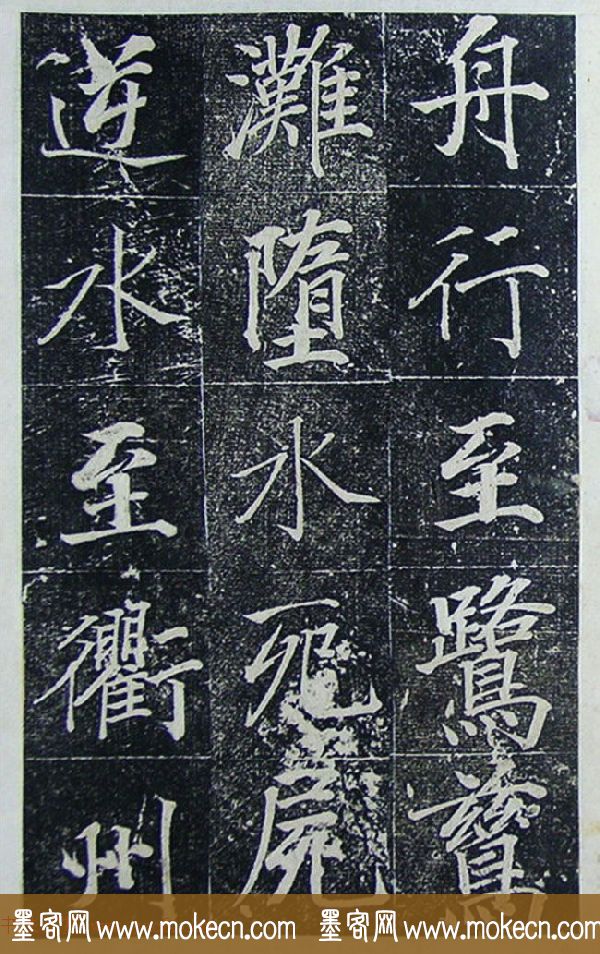 舟行至鷺鷥
灘墮水死屍
逆水至衢州
墨客网 www.mokecn.com 墨客网 www.mokecn.com